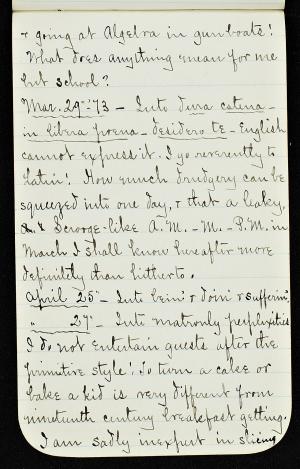 & going at Algebra in gunboats!
What does anything mean for me
but school?
Mar. 29th '73 – Into dura catena –
in libera poena – desidero te – English
cannot express it. I go reverently to
Latin! How much drudgery can be
squeezed into one day, & that a leaky,
& Scrooge-like A.M. – M. – P.M. in
March I shall know hereafter more
definitely than hitherto.
April 25 – Into bein' & doin' & sufferin',
" 27 – Into matronly perplexities
I do not entertain guests after the
primitive style! To turn a cake or
bake a kid is very different from
nineteenth century breakfast getting.
I am sadly inexpert in slicing